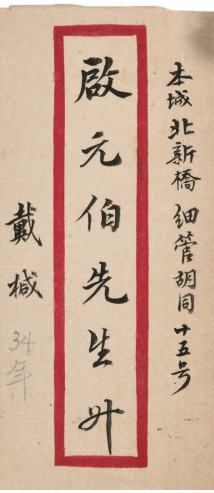 本城北新橋细管胡同十五号
啟元伯先生升
戴椷
34年